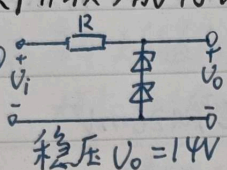 R
+ +
Ui Uo
- -
稳压 Uo=14V